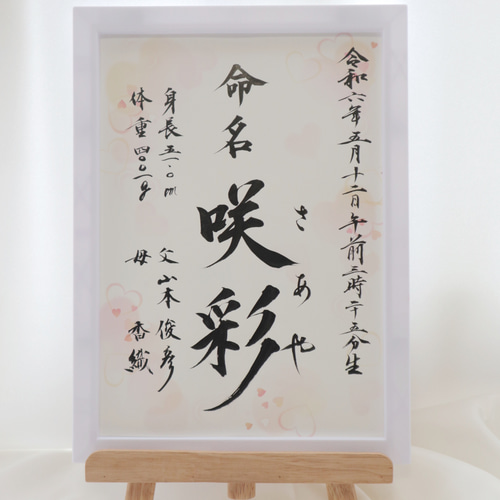 令和六年五月十二日午前三時二十五分生
命名
咲彩
さあや
身長五一.〇cm
体重四〇〇一g
父 山本俊彦
母 香織